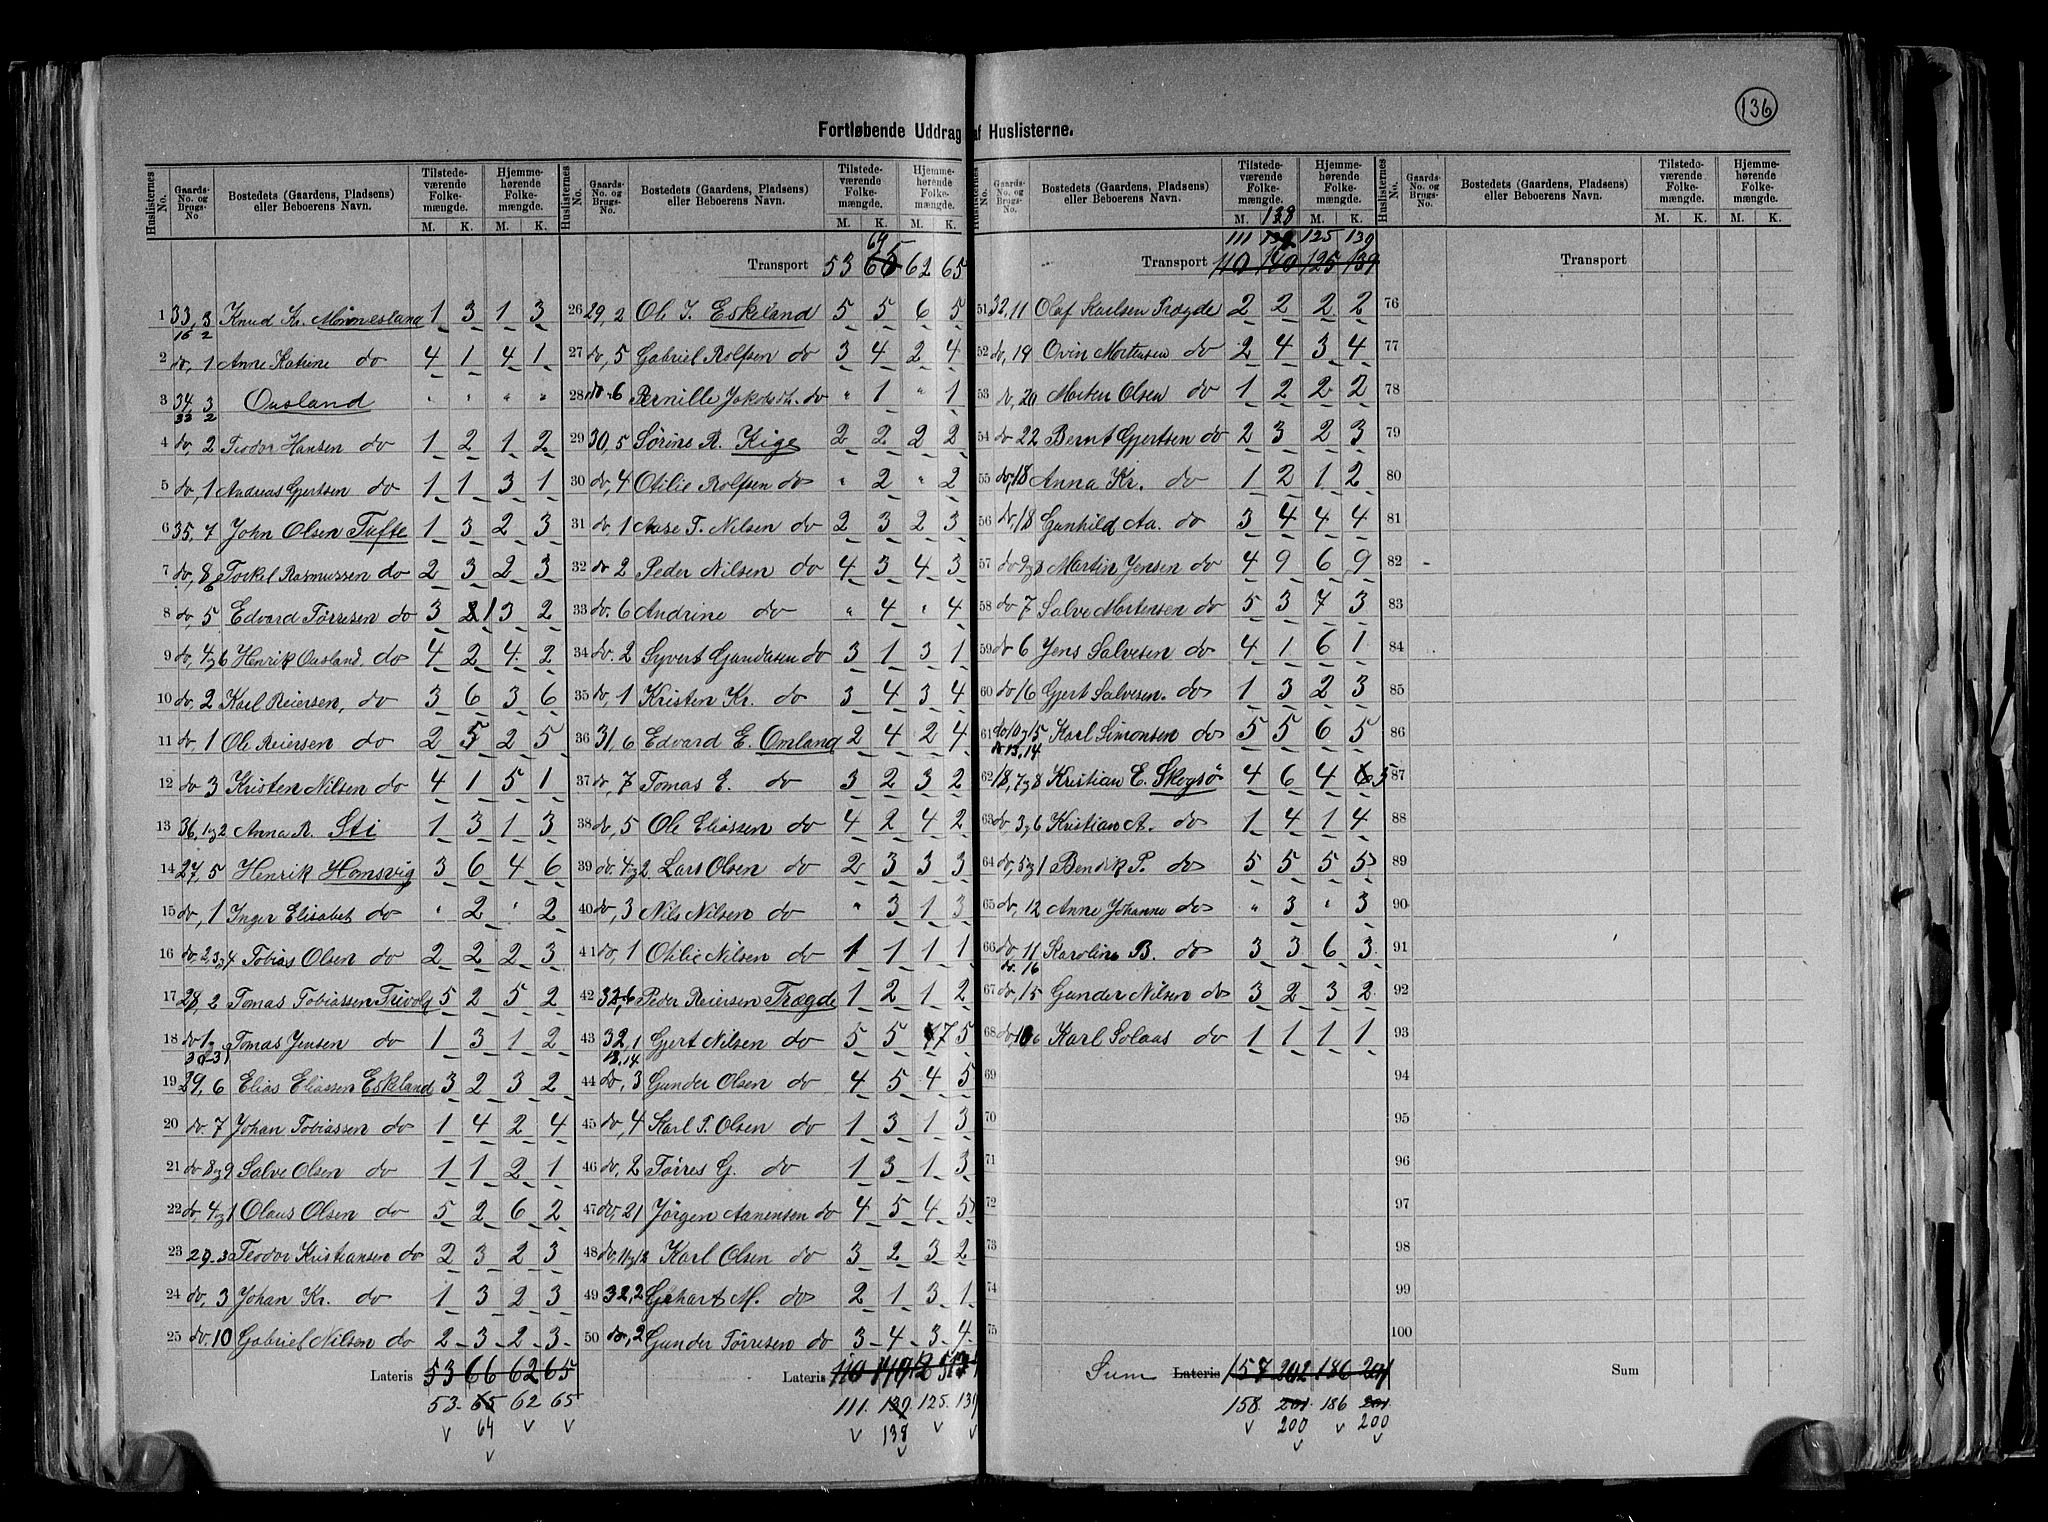 136
Fortløbende Uddrag af Huslisterne.
Huslisternes No. Gaards-No. og Brugs-No. Bostedets (Gaardens, Pladsens) eller Beboerens Navn. Tilstedeværende Folkemængde. M. K. Hjemmehørende Folkemængde. M. K.
1 33, 3 Knud Kr. Mönnesland 1 3 1 3
16 2
2 do, 1 Anne Katrine do 4 1 4 1
3 34, 3 Ousland " " " "
33 2
4 do, 2 Teodor Hansen do 1 2 1 2
5 do, 1 Andreas Gjertsen do 1 1 3 1
6 35, 7 John Olsen Tufte 1 3 2 3
7 do, 8 Torkel Rasmussen do 2 3 2 3
8 do, 5 Edvard Tørresen do 3 1 3 2
9 do, 4 og 6 Henrik Ousland do 4 2 4 2
10 do, 2 Karl Reiersen, do 3 6 3 6
11 do, 1 Ole Reiersen do 2 5 2 5
12 do 3 Kristen Nilsen do 4 1 5 1
13 36, 1 og 2 Anna R. Sti 1 3 1 3
14 27, 5 Henrik Homsvig 3 6 4 6
15 do, 1 Inger Elisabet do " 2 " 2
16 do, 2, 3 og 4 Tobias Olsen do 2 2 2 3
17 28, 2 Tomas Tobiassen Trivold 5 2 5 2
18 do 1 Tomas Jensen do 1 3 1 2
19 29, 6 Elias Eliassen Eskeland 3 2 3 2
20 do. 7 Johan Tobiassen do 1 4 2 4
21 do 8 og 9 Salve Olsen do 1 1 2 1
22 do, 4 og 1 Olaus Olsen do 5 2 6 2
23 29-3 Teodor Kristiansen do 2 3 2 3
24 do, 3 Johan Kr. do 1 3 2 3
25 do. 10 Gabriel Nilsen do 2 3 2 3
Lateris 53 66 62 65
53. 65 62 65
64
Transport 53 62 65
64
26 29, 2 Ole T. Eskeland 5 5 6 5
27 do, 5 Gabriel Rolfsen do 3 4 2 4
28 do-6 Pernille Jakobsdt. do " 1 " 1
29 30, 5 Sørine R. Kige 2 2 2 2
30 do, 4 Otilie Rolfsen do " 2 " 2
31 do, 1 Aase T. Nilsen do 2 3 2 3
32 do 2 Peder Nilsen do 4 3 4 3
33 do. 6 Andrine do " 4 " 4
34 do. 2 Syvert Gundersen do 3 1 3 1
35 do, 1 Kristen Kr. do 3 4 3 4
36 31, 6 Edvard E. Omland 2 4 2 4
37 do, 7 Tomas E. do 3 2 3 2
38 do, 5 Ole Eliassen do 4 2 4 2
39 do. 4 og 2. Lars Olsen do 2 3 3 3
40 do, 3 Nils Nilsen do " 3 1 3
41 do, 1 Otilie Nilsen do 1 1 1 1
42 32, 6 Peder Reiersen Trægde 1 2 1 2
43 32, 1 Gjert Nilsen do 5 5 7 5
13, 14
44 do, 3 Gunder Olsen do 4 5 4 5
45 do, 4 Karl T. Olsen do 1 3 1 3
46 do, 2 Tørres G. do 1 3 1 3
47 do, 21 Jørgen Aanensen do 4 5 4 5
48 do, 11 og 12 Karl Olsen do 3 2 3 2
49 32, 2 Gehart M. do 2 1 3 1
50 do, 2 Gunder Tørresen do 3 4 3 4
Lateris 110 140 125 139
111. 139 125. 139
138
Transport 110 140 125 139
111 138 125 139
51 32, 11 Olaf Karlsen Trægde 2 2 2 2
52 do, 19 Ovin Mortensen do 2 4 3 4
53 do, 20 Morten Olsen do 1 2 2 2
54 do 22 Bernt Gjertsen do 2 3 2 3
55 do, 18 Anna Kr. do 1 2 1 2
56 do, 18 Gunhild Aa. do 3 4 4 4
57 do Martin Jensen do 4 9 6 9
58 do 7 Salve Mortensen do 5 3 7 3
59 do 6 Jens Salvesen do 4 1 6 1
60 do 16 Gjert Salvesen. do 1 3 2 3
61 do 10 og 15 Karl Simonsen do 5 5 6 5
do 13, 14
62 18, 7 og 8 Kristian E. Skogsö 4 6 4 5
63 do, 3 og 6 Kristian A. do 1 4 1 4
64 do, 5 og 1 Bendik P. do 5 5 5 5
65 do, 12 Anne Johanne do " 3 " 3
66 do, 11 Karoline B. do 3 3 6 3
do. 16
67 do, 15 Gunder Nilsen do 3 2 3 2
68 do, Karl Solaas do 1 1 1 1
69
70
71
72
73
74
75
Sum Lateris 157 202 186 201
158 201 186 201
200 200
Transport
76
77
78
79
80
81
82
83
84
85
86
87
88
89
90
91
92
93
94
95
96
97
98
99
100
Sum